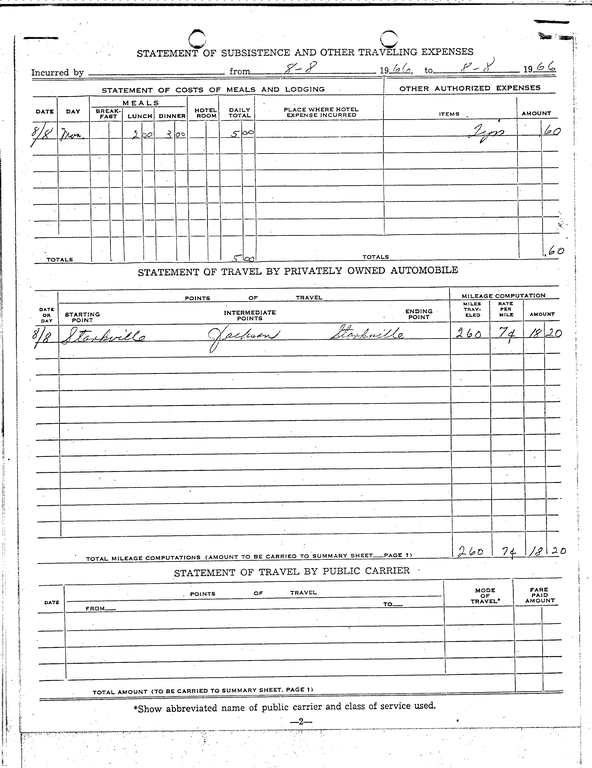 STATEMENT OF SUBSISTENCE AND OTHER TRAVELING EXPENSES
Incurred by from 8-8 1966, to 8-8 1966
STATEMENT OF COSTS OF MEALS AND LODGING OTHER AUTHORIZED EXPENSES
DATE DAY MEALS BREAK-FAST LUNCH DINNER HOTEL ROOM DAILY TOTAL PLACE WHERE HOTEL EXPENSE INCURRED ITEMS AMOUNT
8/8 Mon. 2 00 3 00 5 00 Tips 60
TOTALS 5 00 TOTALS .60
STATEMENT OF TRAVEL BY PRIVATELY OWNED AUTOMOBILE
POINTS OF TRAVEL MILEAGE COMPUTATION
DATE OR DAY STARTING POINT INTERMEDIATE POINTS ENDING POINT MILES TRAV-ELED RATE PER MILE AMOUNT
8/8 Starkville Jackson Starkville 260 7¢ 18 20
TOTAL MILEAGE COMPUTATIONS (AMOUNT TO BE CARRIED TO SUMMARY SHEET—PAGE 1) 260 7¢ 18 20
STATEMENT OF TRAVEL BY PUBLIC CARRIER
DATE POINTS OF TRAVEL MODE OF TRAVEL* FARE PAID AMOUNT
FROM— TO—
TOTAL AMOUNT (TO BE CARRIED TO SUMMARY SHEET, PAGE 1)
*Show abbreviated name of public carrier and class of service used.
—2—